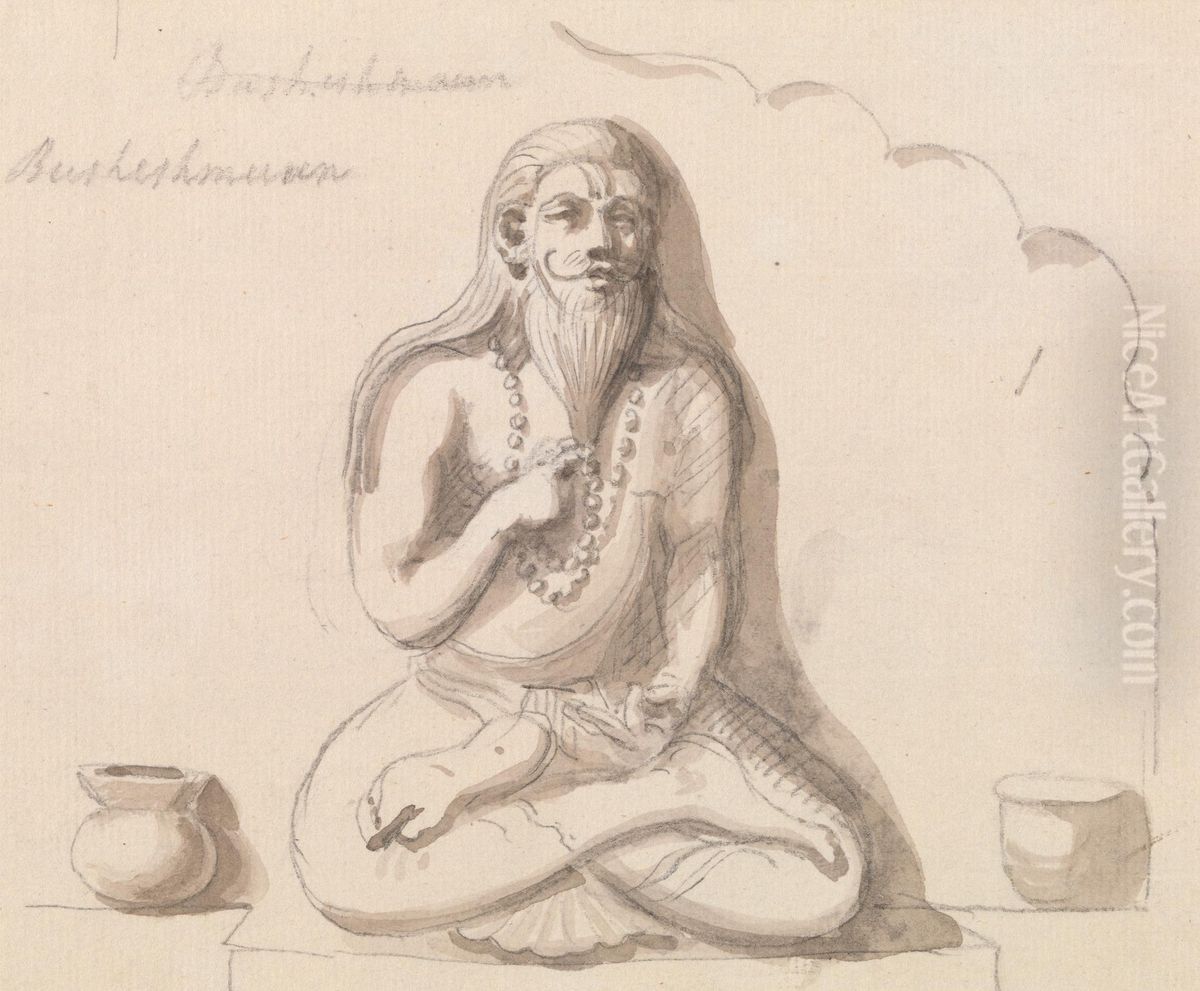 Busheshmaun
Busheshmuan
NiceArtGallery.com